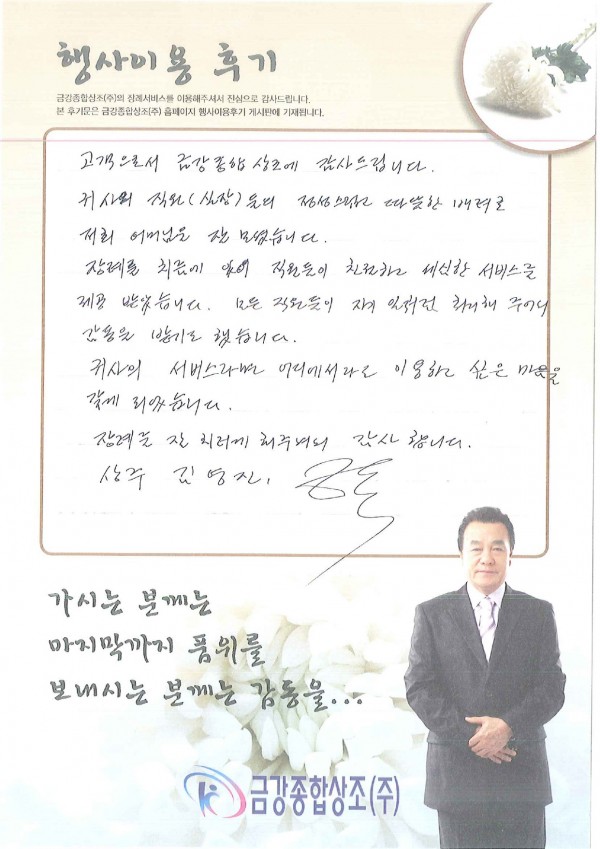 행사이용 후기
금강종합상조(주)의 장례서비스를 이용해주셔서 진심으로 감사드립니다.
본 후기문은 금강종합상조(주) 홈페이지 행사이용후기 게시판에 기재됩니다.
고객으로서 금강종합상조에 감사드립니다.
귀사의 직원(실장)들의 정성스럽고 따뜻한 배려로
저희 어머님을 잘 모셨습니다.
장례를 치름에 있어 직원들이 친절하고 세심한 서비스를
제공 받았습니다. 모든 직원들이 자기 일처럼 해주니
감동을 받기도 했습니다.
귀사의 서비스라면 어디에서라도 이용하고 싶은 마음을
갖게 되었습니다.
장례를 잘 치르게 해주셔서 감사 합니다.
상주 김영진.
가시는 분께는
마지막까지 품위를
보내시는 분께는 감동을...
금강종합상조(주)